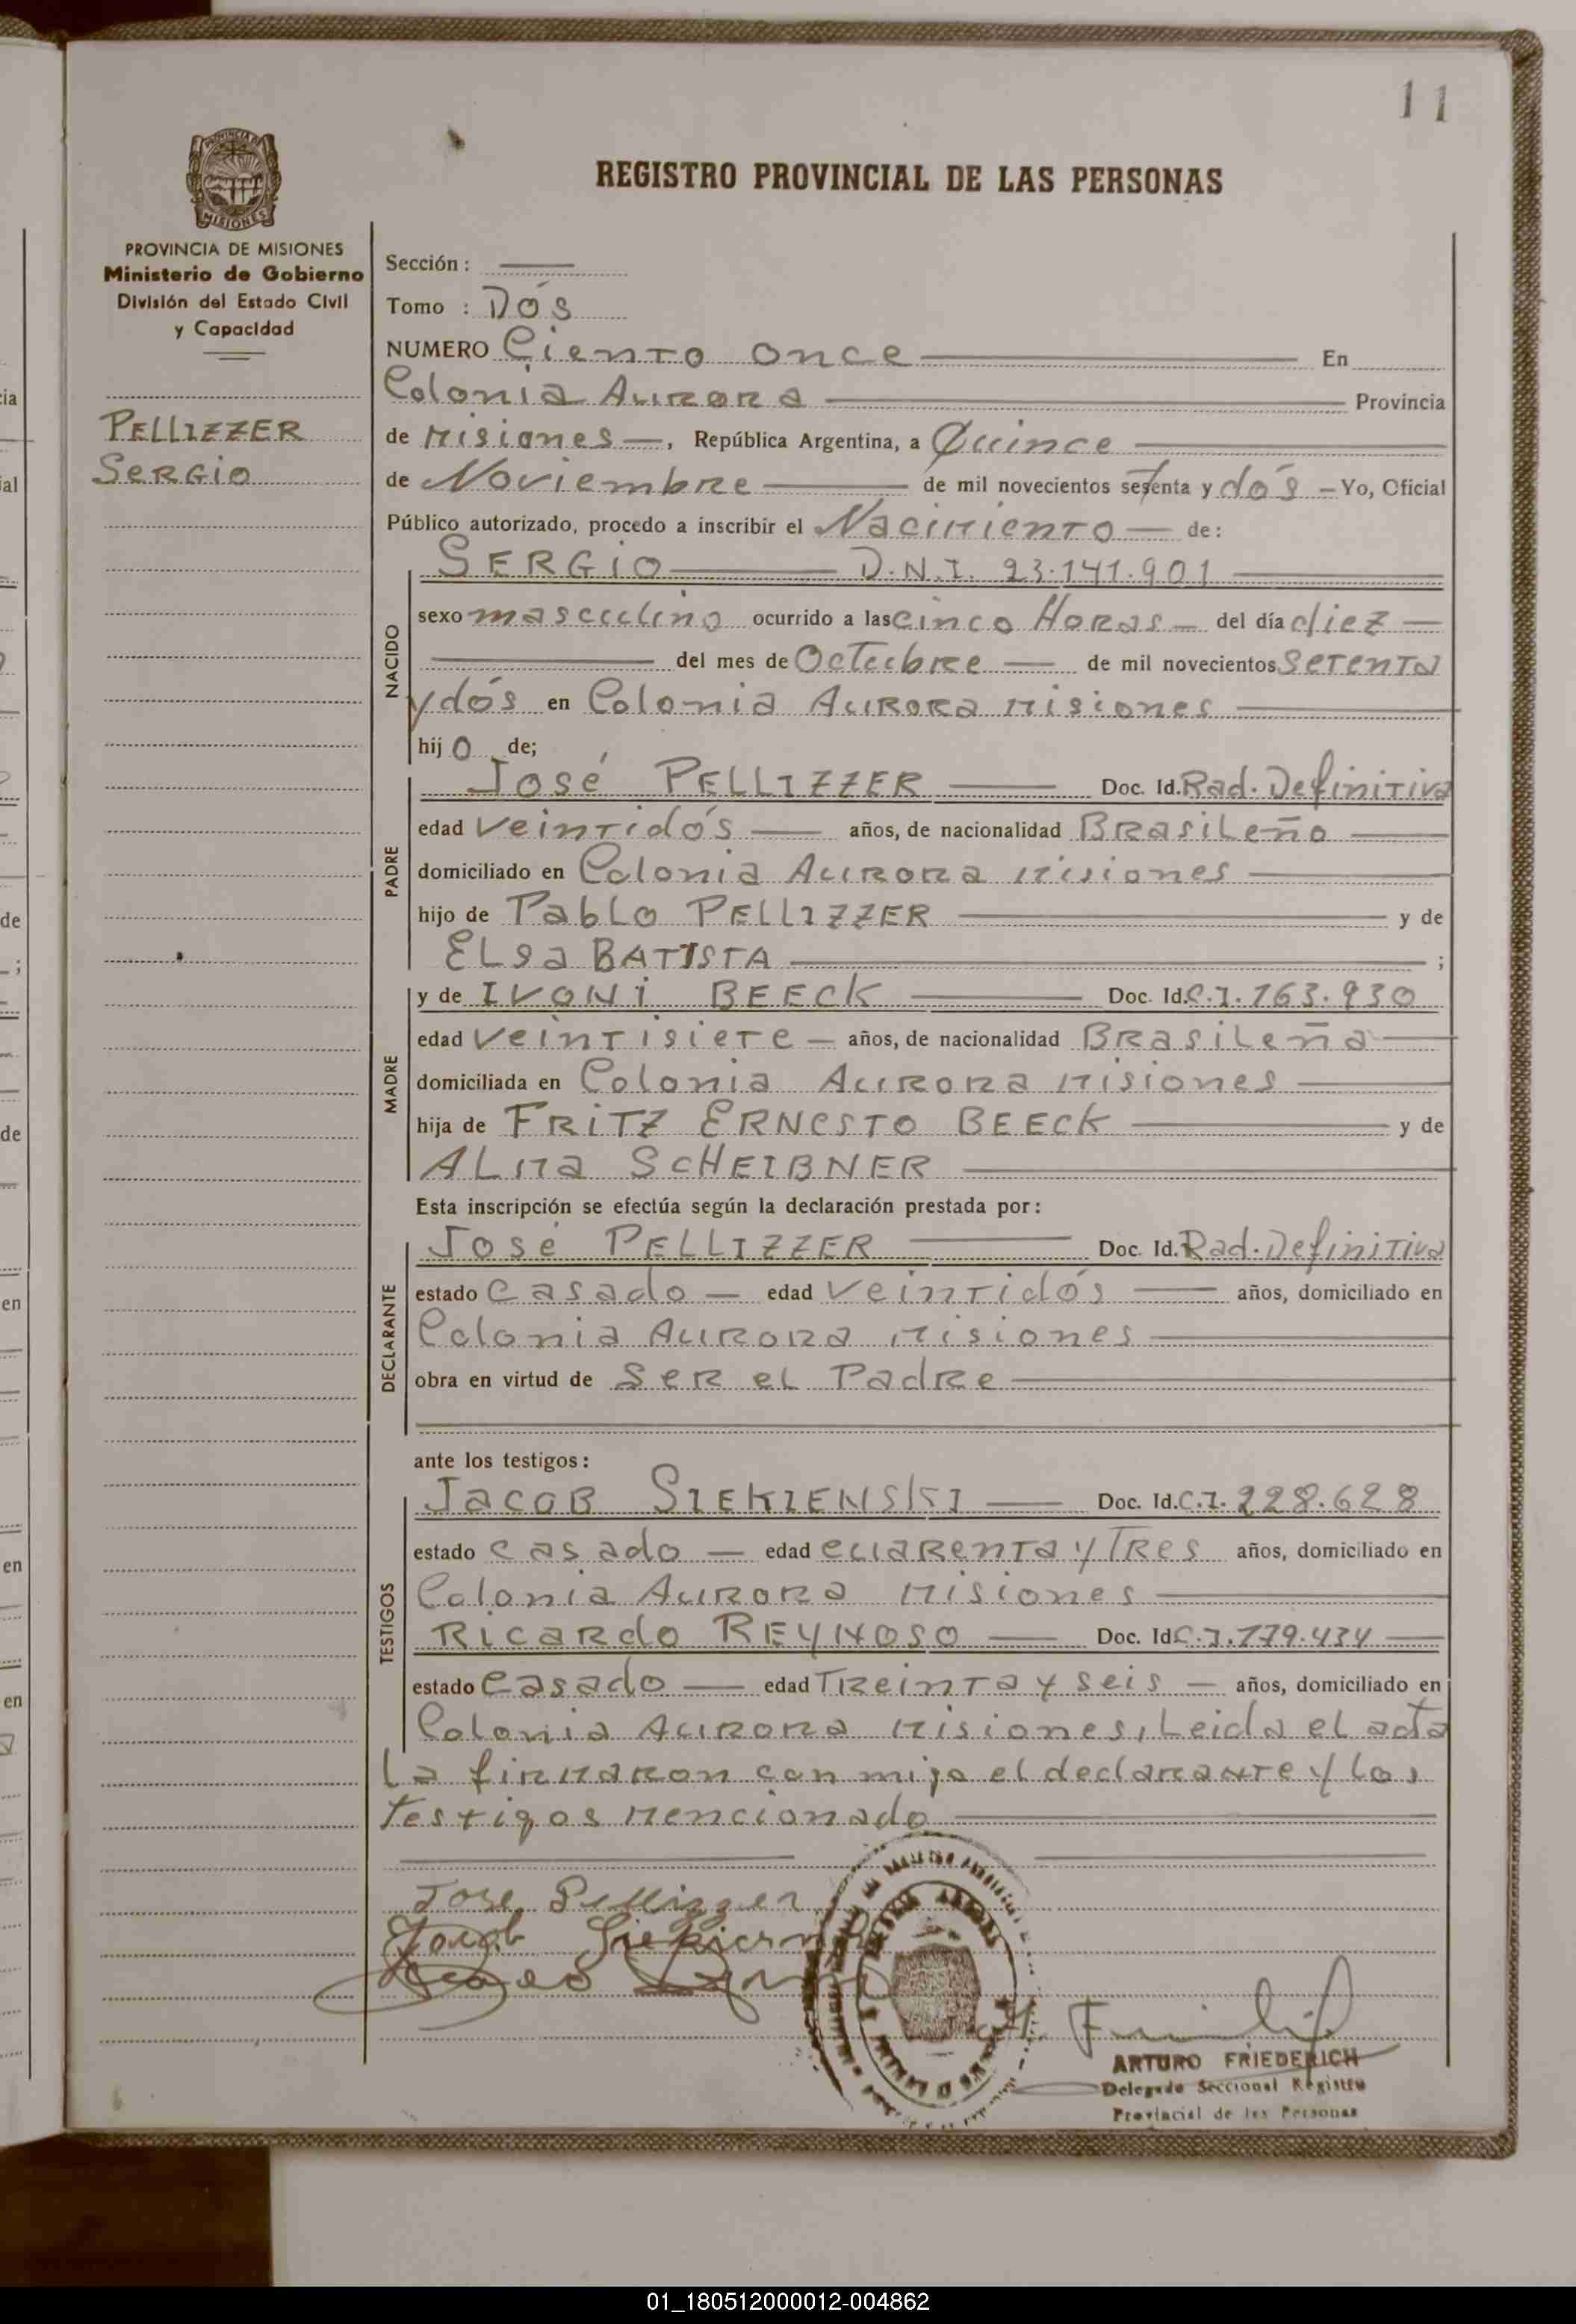 11
REGISTRO PROVINCIAL DE LAS PERSONAS
MISIONES
PROVINCIA DE MISIONES
Ministerio de Gobierno
División del Estado Civil
y Capacidad
PELLIZZER
SERGIO
Sección :
Tomo : Dós
NUMERO Ciento once En
Colonia Aurora Provincia
de Misiones, República Argentina, a Quince
de Noviembre de mil novecientos setenta y dós Yo, Oficial
Público autorizado, procedo a inscribir el Nacimiento de:
NACIDO
SERGIO D.N.I. 23.141.901
sexo masculino ocurrido a las cinco Horas del día diez
del mes de Octubre de mil novecientos setenta
y dós en Colonia Aurora Misiones
hijo de;
PADRE
José PELLIZZER Doc. Id. Rad. Definitiva
edad veintidós años, de nacionalidad Brasileño
domiciliado en Colonia Aurora Misiones
hijo de Pablo PELLIZZER y de
Elsa BATISTA ;
MADRE
y de IVONI BEECK Doc. Id. C.I. 163.930
edad veintisiete años, de nacionalidad Brasileña
domiciliada en Colonia Aurora Misiones
hija de FRITZ ERNESTO BEECK y de
ALMA SCHEIBNER
Esta inscripción se efectúa según la declaración prestada por:
DECLARANTE
José PELLIZZER Doc. Id. Rad. Definitiva
estado casado edad veintidós años, domiciliado en
Colonia Aurora Misiones
obra en virtud de ser el Padre
ante los testigos:
TESTIGOS
Jacob SIEKIENSKI Doc. Id. C.I. 228.628
estado casado edad cuarenta y Tres años, domiciliado en
Colonia Aurora Misiones
Ricardo REYNOSO Doc. Id. C.I. 179.434
estado casado edad Treinta y seis años, domiciliado en
Colonia Aurora Misiones, Leida el acta
la firmaron con migo el declarante y los
testigos mencionado
Jose Pellizzer
Jacob
ARTURO FRIEDERICH
Delegado Seccional Registro
Provincial de las Personas
01_180512000012-004862